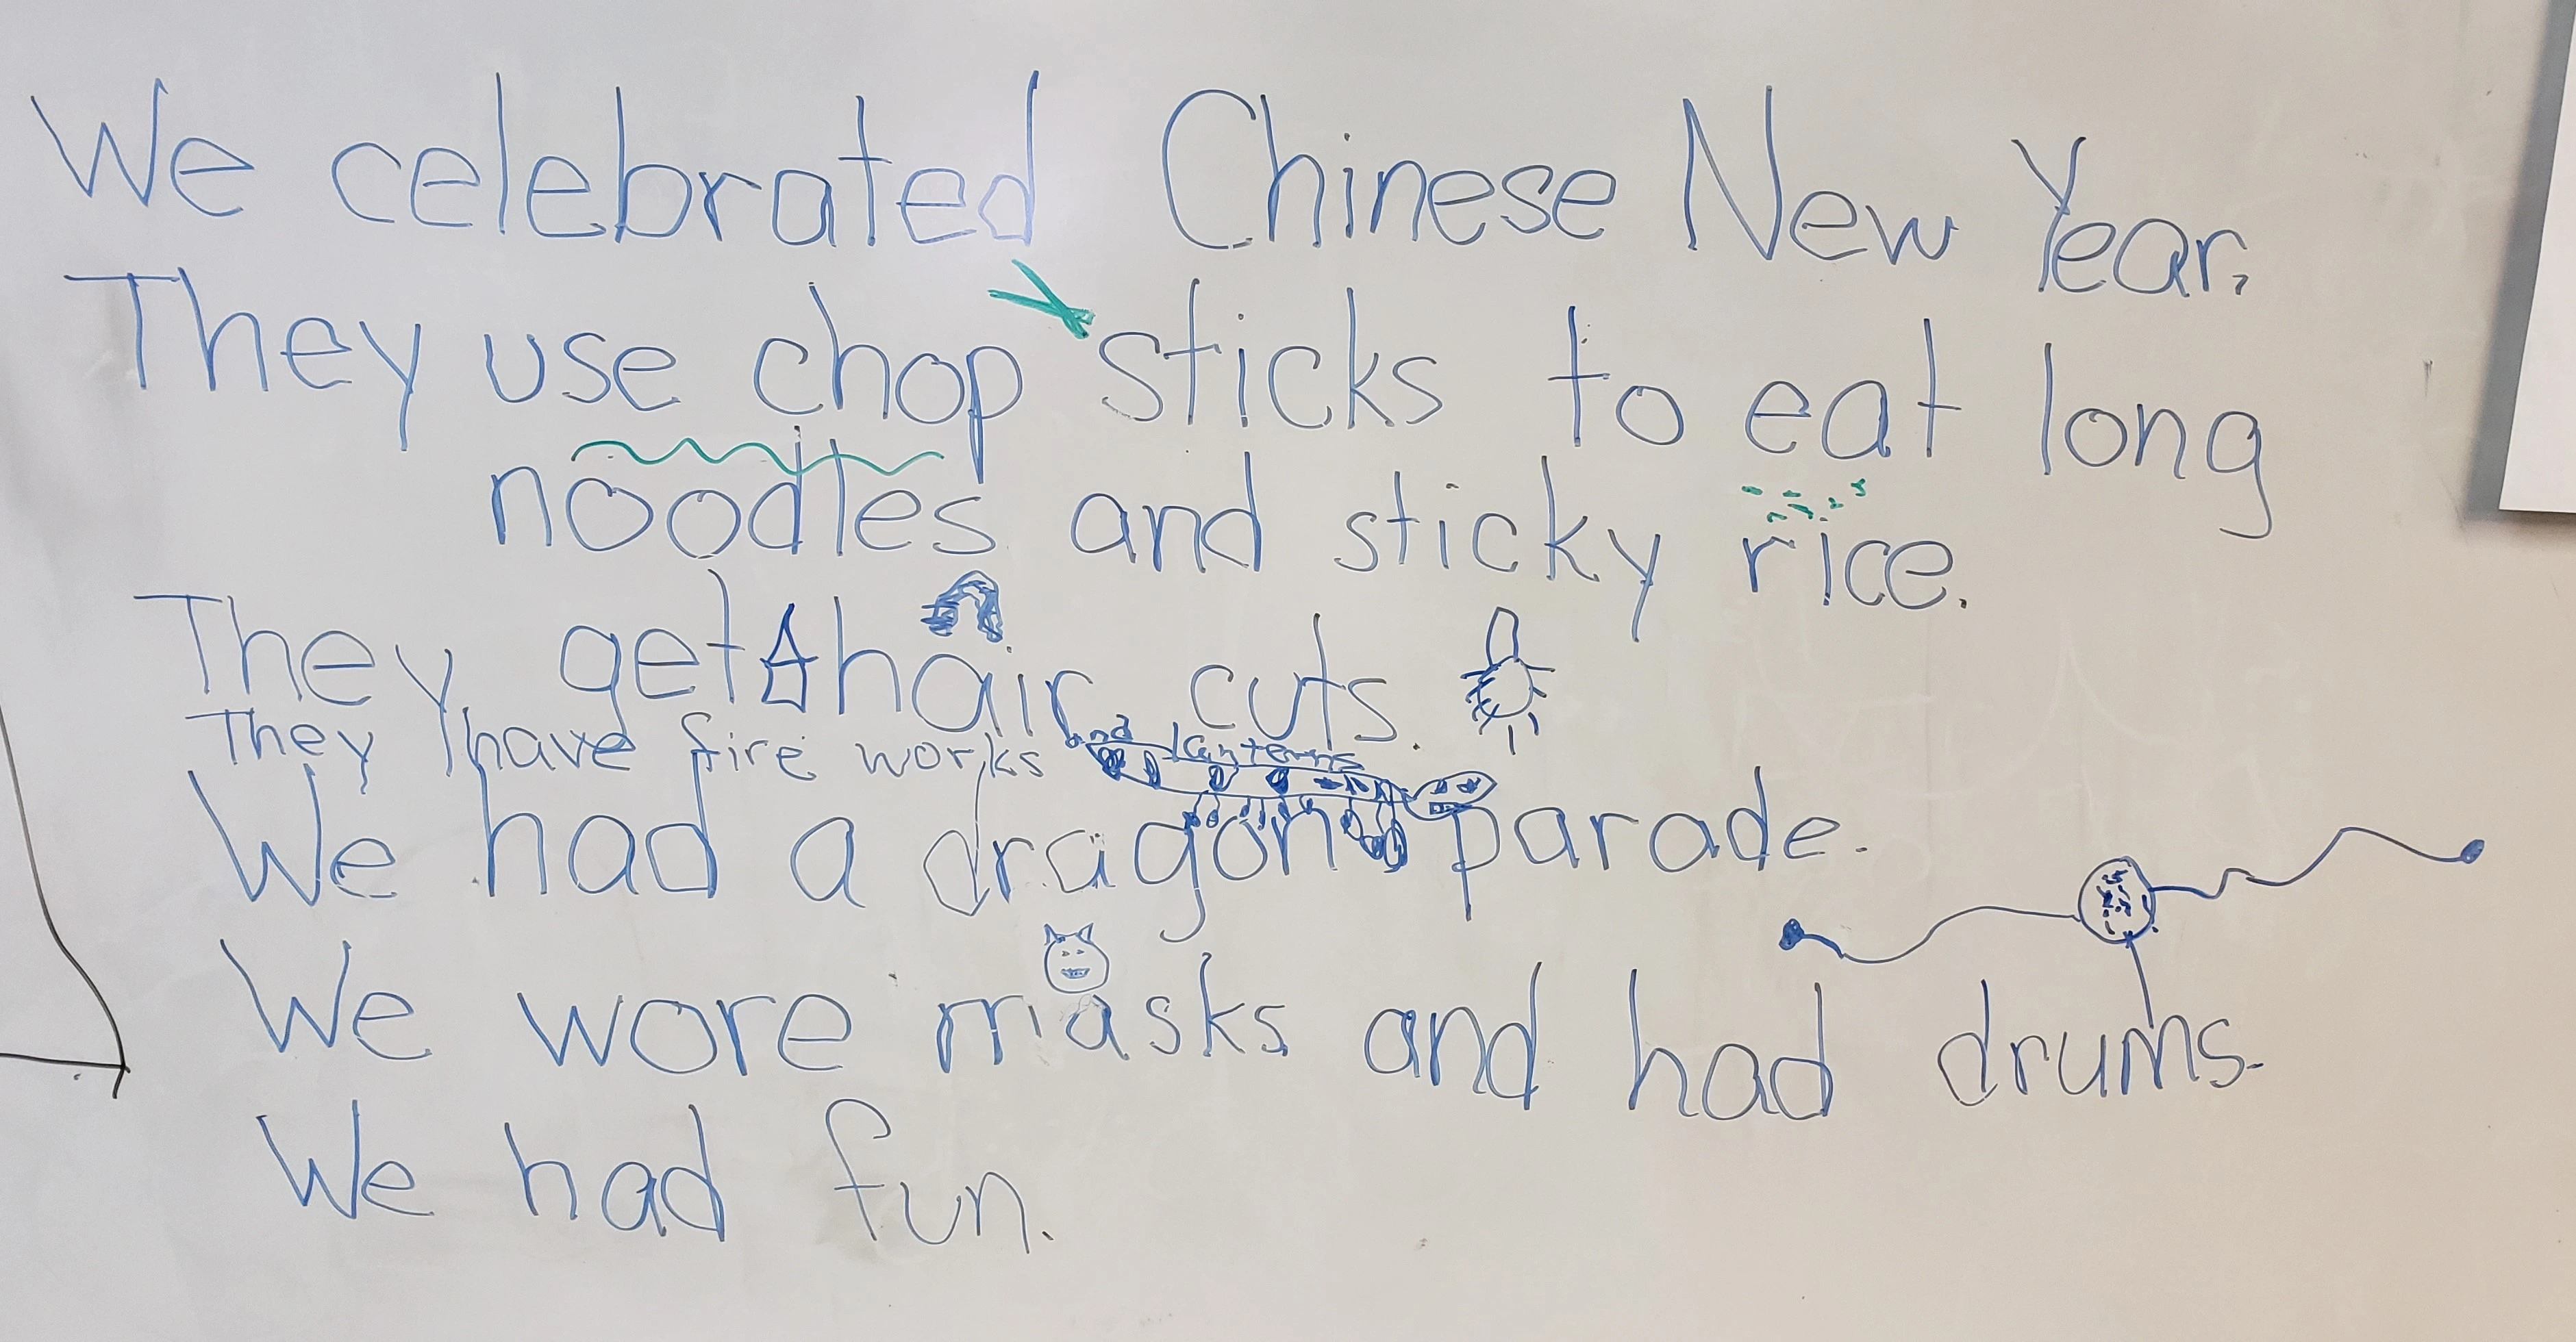 We celebrated Chinese New Year.
They use chop sticks to eat long
noodles and sticky rice.
They get hair cuts.
They have fire works and lanterns
We had a dragon parade.
We wore masks and had drums.
We had fun.